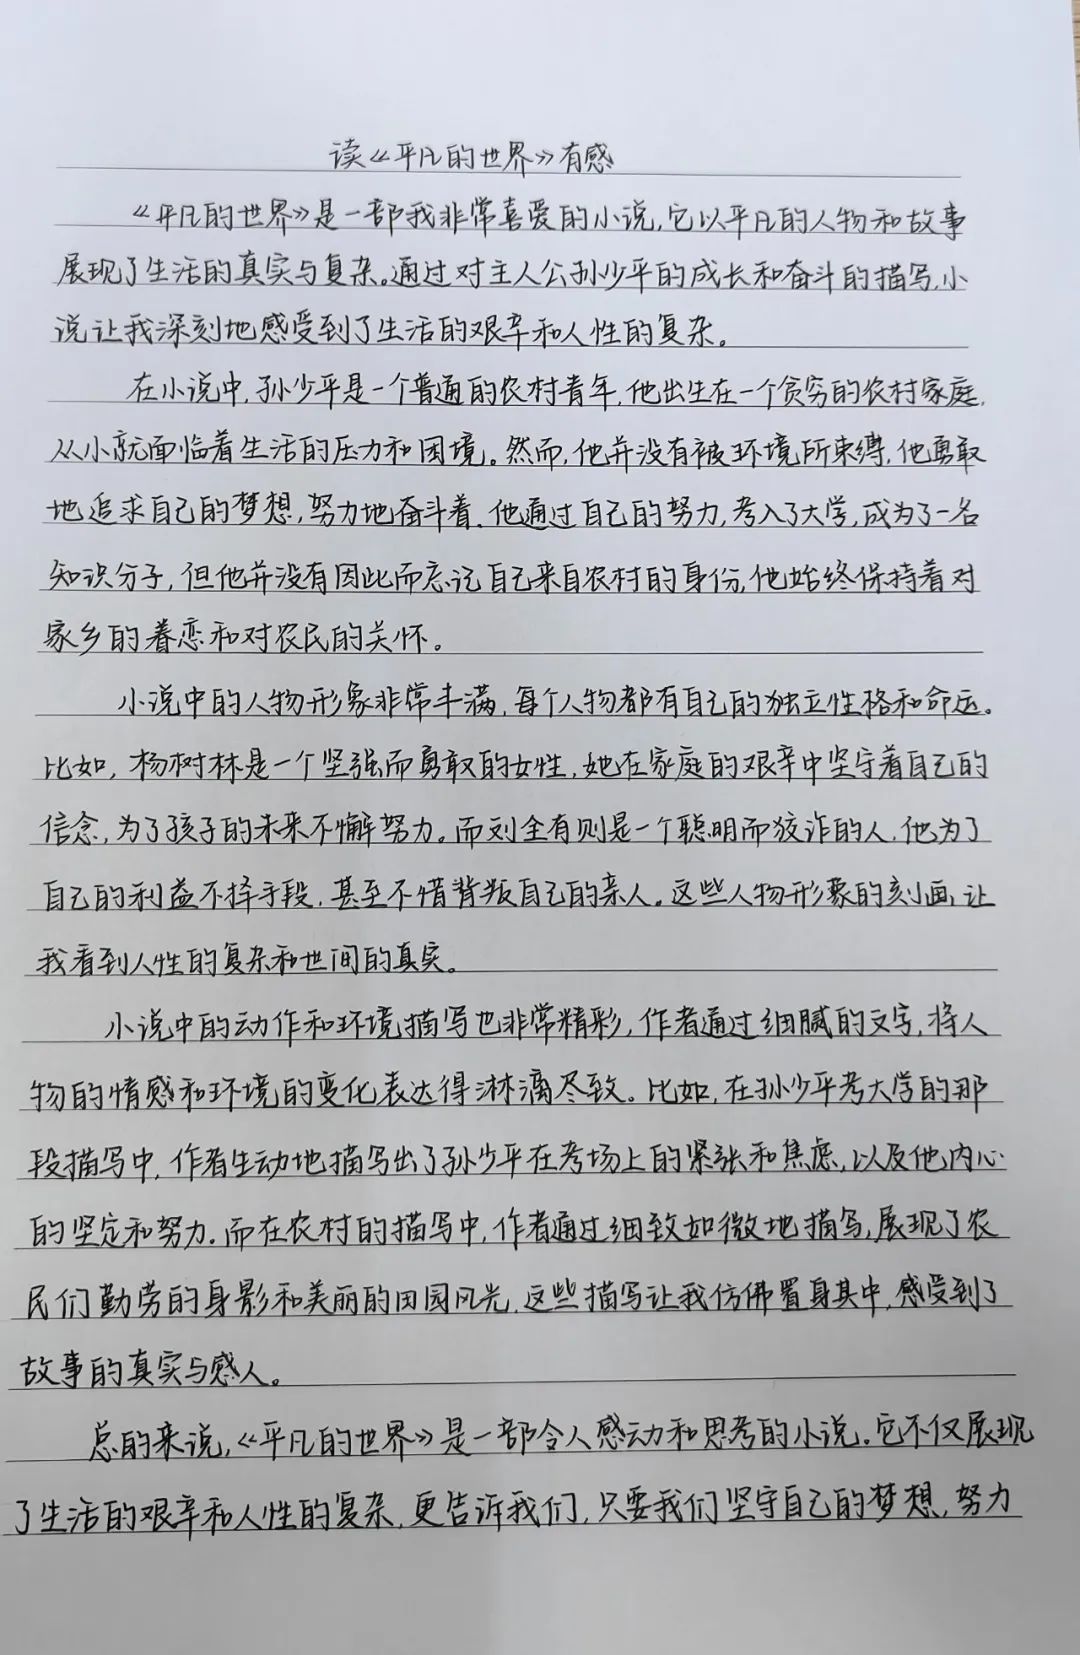 读《平凡的世界》有感
《平凡的世界》是一部我非常喜爱的小说,它以平凡的人物和故事
展现了生活的真实与复杂。通过对主人公孙少平的成长和奋斗的描写,小
说让我深刻地感受到了生活的艰辛和人性的复杂。
在小说中,孙少平是一个普通的农村青年,他出生在一个贫穷的农村家庭,
从小就面临着生活的压力和困境。然而,他并没有被环境所束缚,他勇敢
地追求自己的梦想,努力地奋斗着.他通过自己的努力,考入了大学,成为了一名
知识分子,但他并没有因此而忘记自己来自农村的身份,他始终保持着对
家乡的眷恋和对农民的关怀。
小说中的人物形象非常丰满,每个人物都有自己的独立性格和命运。
比如,杨树林是一个坚强而勇敢的女性,她在家庭的艰辛中坚守着自己的
信念,为了孩子的未来不懈努力。而刘全有则是一个聪明而狡诈的人,他为了
自己的利益不择手段,甚至不惜背叛自己的亲人。这些人物形象的刻画,让
我看到人性的复杂和世间的真实。
小说中的动作和环境描写也非常精彩,作者通过细腻的文字,将人
物的情感和环境的变化表达得淋漓尽致。比如,在孙少平考大学的那
段描写中,作者生动地描写出了孙少平在考场上的紧张和焦虑,以及他内心
的坚定和努力.而在农村的描写中,作者通过细致如微地描写,展现了农
民们勤劳的身影和美丽的田园风光,这些描写让我仿佛置身其中,感受到了
故事的真实与感人。
总的来说,《平凡的世界》是一部令人感动和思考的小说。它不仅展现
了生活的艰辛和人性的复杂,更告诉我们,只要我们坚守自己的梦想,努力